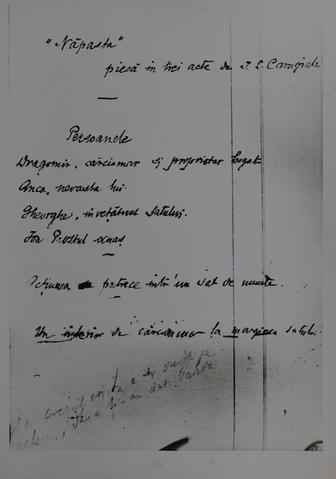 "Năpasta"
piesă în trei acte de I. L. Caragiale
Persoanele
Dragomir, cârciumar și proprietar bogat
Anca, nevasta lui.
Gheorghe, învețătorul satului.
Ion Prostul ocnaș
Acțiunea se petrece într'un sat de munte.
Un interior de cârciumar la marginea satului.